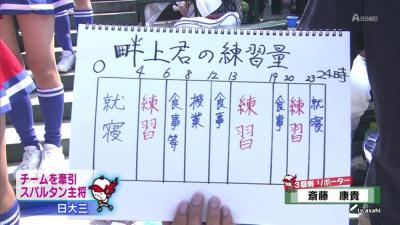 ABS朝日
畔上君の練習量
0 4 6 8 12 13 19 20 23 24時
就寝 練習 食事等 授業 食事 練習 食事 練習 就寝
チームを牽引
スパルタン主将
日大三
3塁側 リポーター
斎藤 康貴
tv asahi